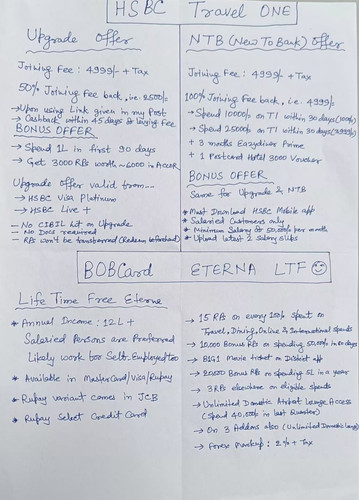 HSBC Travel ONE
Upgrade Offer
Joining Fee: 4999/- + Tax
50% Joining Fee back, i.e. 2500/-
→ Upon using Link given in my Post
→ Cashback within 45 days of laying Fee
BONUS OFFER
→ Spend 1L in first 90 days
→ Get 3000 RB worth ~6000 in Accor
Upgrade offer valid from--
→ HSBC Visa Platinum
→ HSBC Live +
- No CIBIL hit on Upgrade
- No Docs required
- RPs won't be transferred (Redeem beforehand)
NTB (New To Bank) Offer
Joining Fee: 4999/- + Tax
100% Joining Fee back, i.e. 4999/-
→ Spend 10000/- on T1 within 30 days
→ Spend 25000/- on T1 within 90 days
+ 3 months Eazydiner Prime
+ 1 Postcard Hotel 3000 Voucher
BONUS OFFER
Same for Upgrade & NTB
* Must Download HSBC Mobile app
* Salaried Customers only
* Minimum Salary of 50,000/- per month
* Upload latest 2 salary slips
BOBCard ETERNA LTF
Life Time Free Eterna
* Annual Income: 12L+
Salaried Persons are Preferred
Likely work for Self-Employed too
* Available in MasterCard/Visa/Rupay
* Rupay variant comes in JCB
* Rupay Select Credit Card
→ 15 RPs on every 100/- spent on
Travel, Dining, Online & International spends
→ 10,000 Bonus RPs on spending 50,000/- in 60 days
→ B1G1 Movie ticket on District app
→ 20,000 Bonus RPs on spending 5L in a year
→ 3 RPs elsewhere on eligible spends
→ Unlimited Domestic Airport Lounge Access
(Spend 40,000/- in last Quarter)
→ On 3 Addons also (Unlimited Domestic Lounge)
→ Forex Markup: 2% + Tax